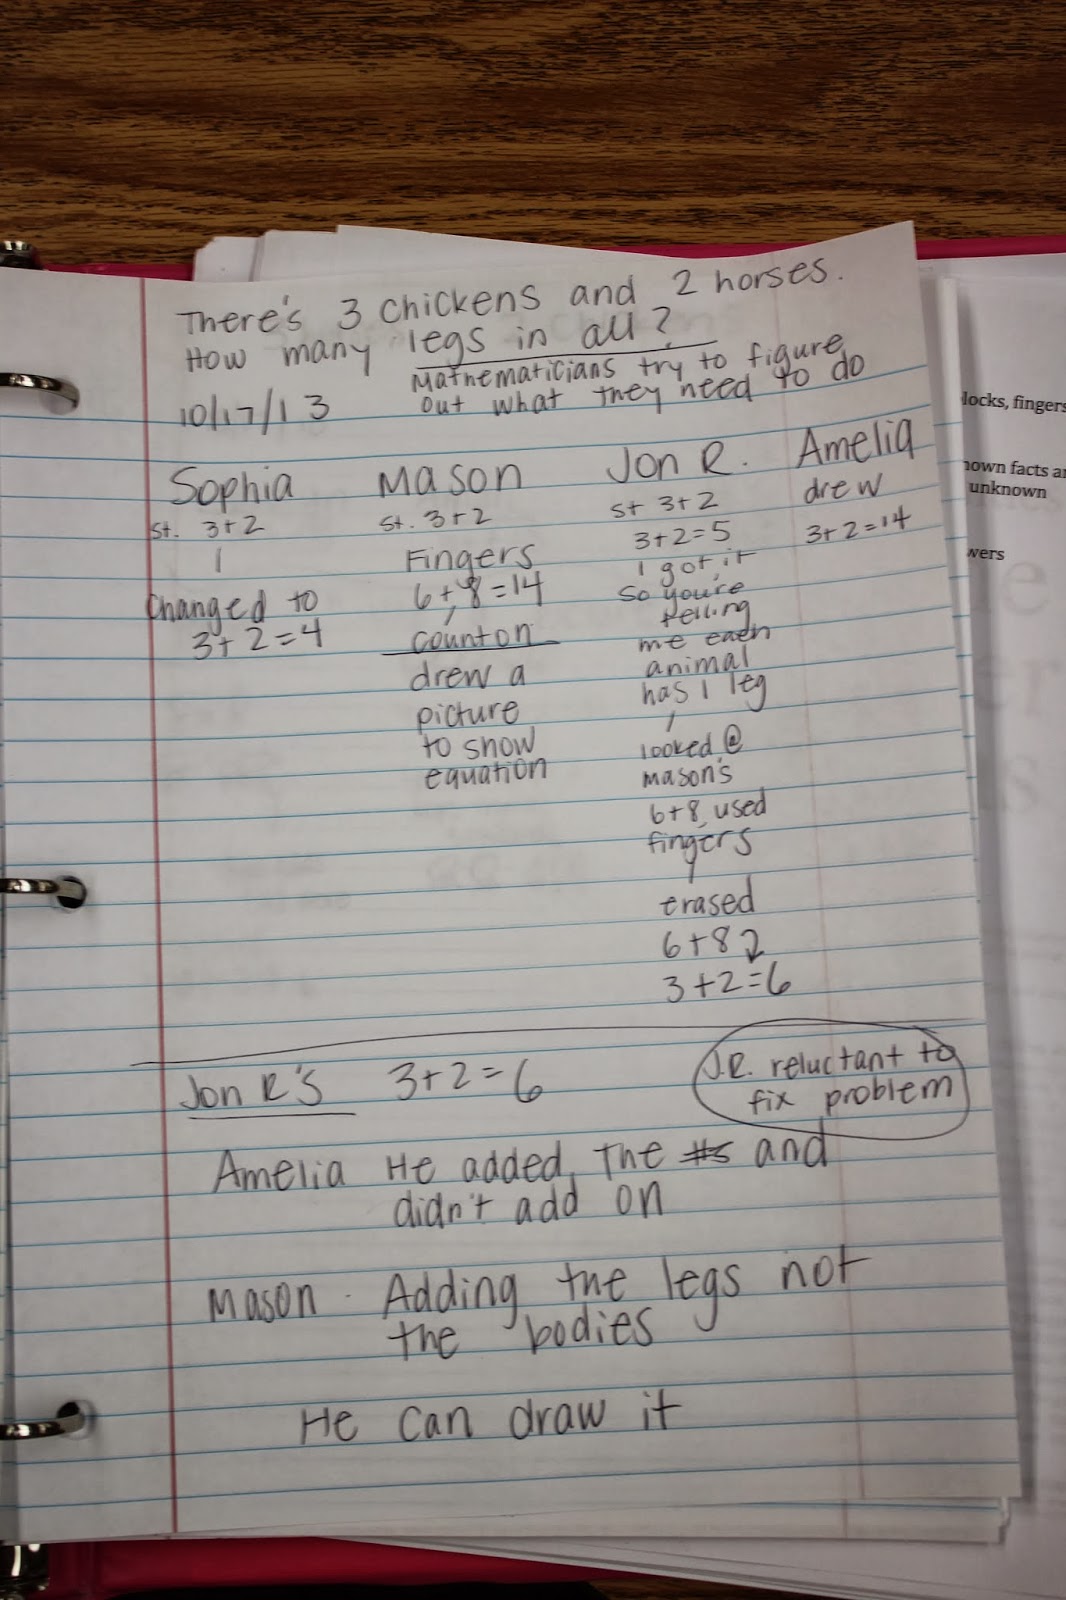 There's 3 chickens and 2 horses.
How many legs in all?
Mathematicians try to figure
out what they need to do
10/17/13
Sophia
st. 3+2
Changed to
3+2=4
Mason
st. 3+2
Fingers
6+8=14
count on
drew a
picture
to show
equation
Jon R.
st 3+2
3+2=5
I got it
So you're
telling
me each
animal
has 1 leg
looked @
mason's
6+8, used
fingers
erased
6+8
3+2=6
Amelia
drew
3+2=14
Jon R's 3+2=6
J.R. reluctant to
fix problem
Amelia He added the #s and
didn't add on
Mason. Adding the legs not
the bodies
He can draw it
locks, fingers
nown facts a
unknown
wers